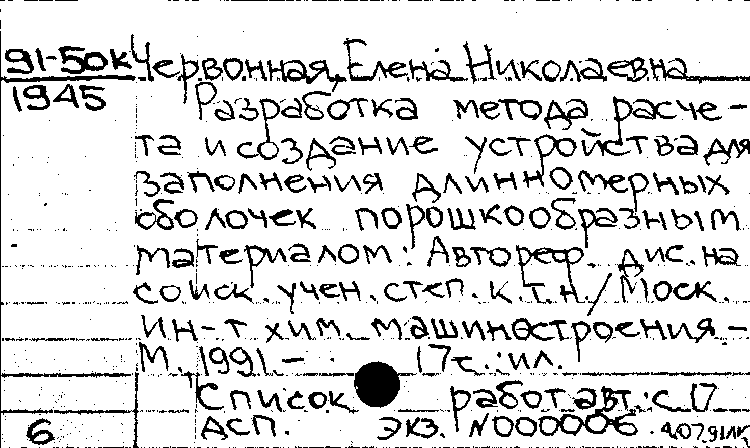 91-50к Червонная, Елена Николаевна
1945 Разработка метода расче-
та и создание устройства для
заполнения длинномерных
оболочек порошкообразным
материалом: Автореф. дис. на
соиск. учен. степ. к.т.н./ Моск.
ин-т хим. машиностроения.-
М., 1991.- 17с.: ил.
Список работ авт.: с. 17
6 АСП. ЭКЗ. N000006.